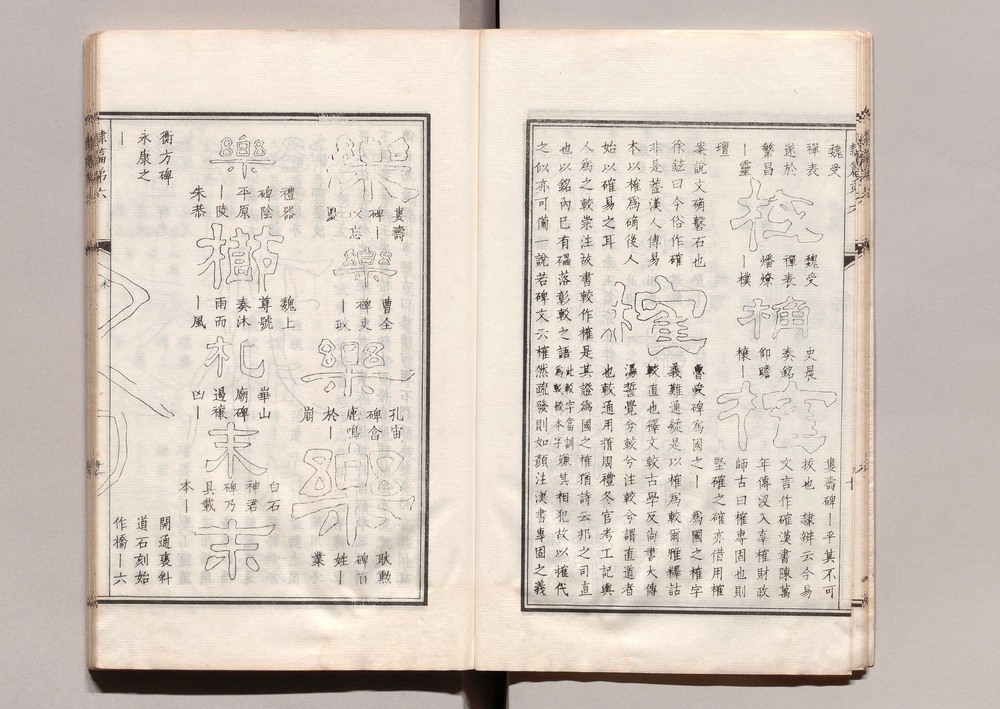 魏受
禪表
遂於
繁昌
丨靈
壇
校
魏受
禪表
燔燎
丨樸
桷
史晨
奏銘
仰瞻
榱丨
榷
婁壽碑丨乎其不可
拔也 隸辨云今易
文言作確漢書陳萬
年傳没入辜榷財政
師古曰榷專固也則
堅確之確亦借用榷
字
案說文确磬石也
徐鉉曰今俗作確
非是蓋漢人傳易
本以榷爲确後人
始以確易之耳
榷
魯峻碑爲國之丨 爲國之榷字
義難通疑是以榷爲較爾雅釋詁
較直也釋文較古學反尚書大傳
湯誓覺兮較兮注較兮謂直道者
也較通用揩周禮冬官考工記輿
人爲之較崇注故書較作榷是其證爲國之榷猶詩云邦之司直
也以銘內已有礧落彰較之語此較字當訓爲較較本字嫌其相犯故以榷代
之似亦可備一說若碑文六榷然疏發則如顏注漢書專固之義
樂
婁壽
碑丨
以忘
㤙
樂
曹全
碑吏
丨政
樂
孔宙
碑會
鹿鳴
於丨
崩
樂
耿勲
碑百
姓丨
業
樂
禮器
碑陰
平原
丨陵
朱恭
櫛
魏上
尊號
奏沐
雨而
丨風
札
華山
廟碑
遏穰
凶丨
末
白石
神君
碑乃
具載
本丨
末
開通襃斜
道石刻始
作橋丨六
衡方碑
永康之
丨
隸篇第六